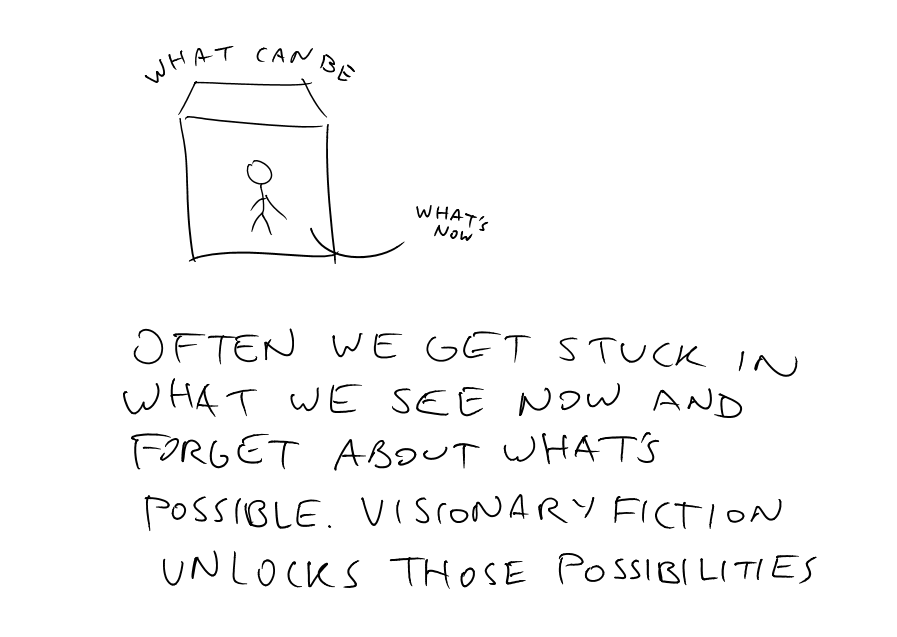 WHAT CAN BE
WHAT'S
NOW
OFTEN WE GET STUCK IN
WHAT WE SEE NOW AND
FORGET ABOUT WHAT'S
POSSIBLE. VISIONARY FICTION
UNLOCKS THOSE POSSIBILITIES